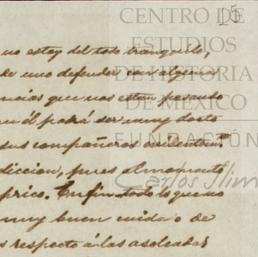 15
CENTRO DE
ESTUDIOS
DE HISTORIA
DE MÉXICO
FUNDACIÓN
Carlos Slim
no estoy del todo tranquilo,
de uno defender con algun
ncias que nos estan pasando
n él podrá ser muy docto
sus compañeros
diccion, pues al momento
prico. En fin todo lo que no
muy buen cuidado de
s respecto á las asoleadas